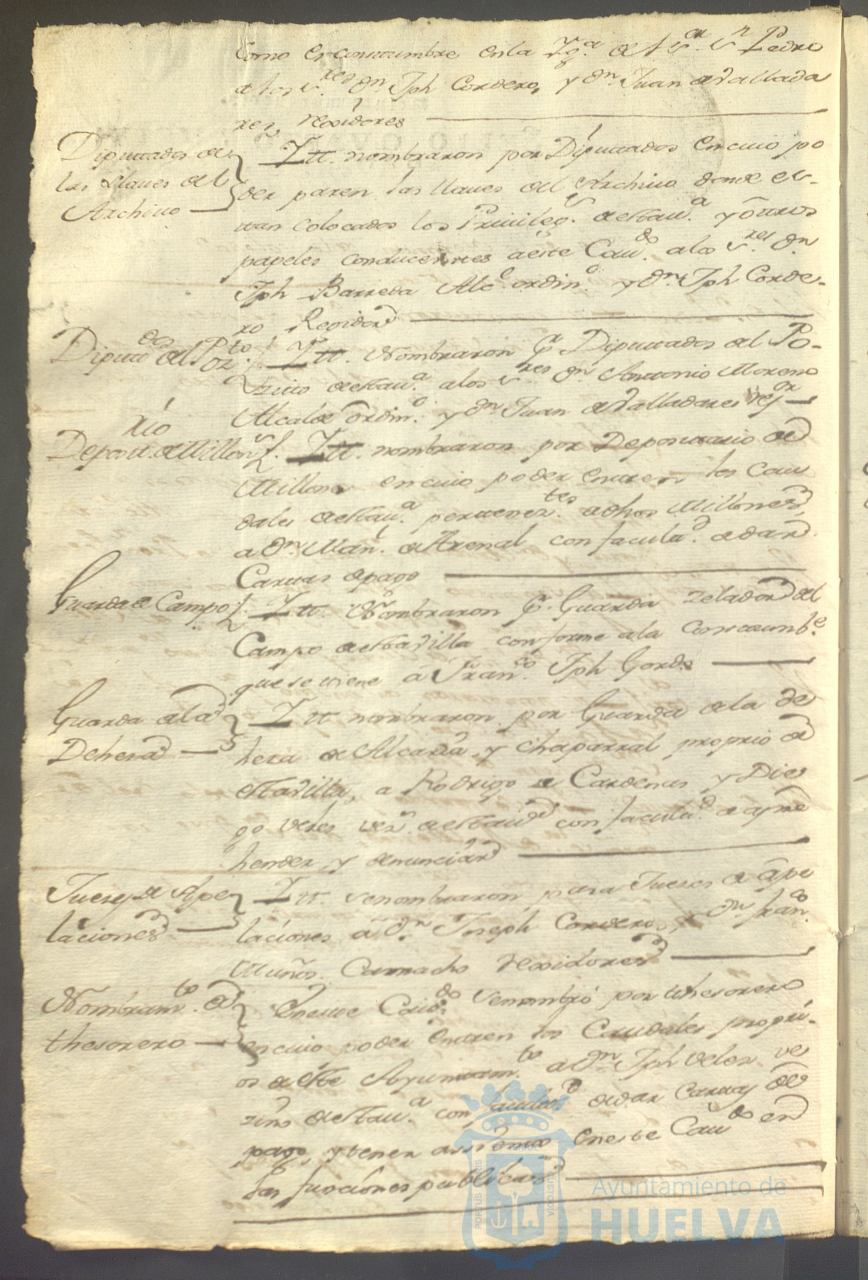 Como es constumbre en la Ygª de Sʳ Sⁿ Pedro
a los Sʳᵉˢ Dⁿ Jph Cordero, y Dⁿ Juan de Vallada
res rexidores
Diputtados de
las Llaves del
Archivo
Ytt. nombraron por Diputtados en cuio po
der paren las llaves del Archivo donde es-
tan colocados los Privilegˢ de esta vᵃ y ôtros
papeles conducentes a este Cavᵈᵒ a los Sʳᵉˢ Dⁿ
Jph Barreda Alcᵉ ordinº y Dⁿ Jph Corde-
ro Regidor
Diputᵈᵒˢ del Pozᵗᵒ
Ytt. Nombraron pʳ Diputtados del Po-
sito de esta vᵃ a los Sʳᵉˢ Dⁿ Antonio Moreno
Alcalde ordinº y Dⁿ Juan de Valladares rejᵒʳ
Deposítᵣⁱᵒ de Millonˢ
Ytt. nombraron por Deposittario de
Millones en cuio poder entren los Cau
dales de esta vᵃ pertenezᵗᵉˢ a dhos Millones
a Dⁿ Manˡ de Arenal con facultᵈ de dar
Cartas de pago
Guarda de Campo
Ytt. Nombraron pʳ Guarda zelador del
Campo de esta villa conforme a la Constumbᵉ
que se tiene â Franᶜᵒ Jph Gordo
Guarda de la
Dehesa
Ytt nombraron por Guarda de la de
hesa de Alcaria y chaparral proprio de
esta villa, a Rodrigo de Cardenas y Die
go Veles vezº de esta vᵃ con facultᵈ de apre
hender y denunciar
Jueses de Ape
laciones
Ytt se nombraron para Jueses de âpe
laciones â Dⁿ Joseph Cordero, y Dⁿ Franᶜᵒ
Muños Camacho rexidores
Nombramᵗᵒ de
thesorero
En este Cavᵈᵒ se nombró por thesorero
en cuio poder entren los Caudales propri-
os de este Ayuntamᵗᵒ a Dⁿ Jph Veles ve
zino de esta vᵃ con facultᵈ de dar Cartas de
pago, y tener assiento en este Cavᵈᵒ en
las funciones publicas
Ayuntamiento de
HUELVA